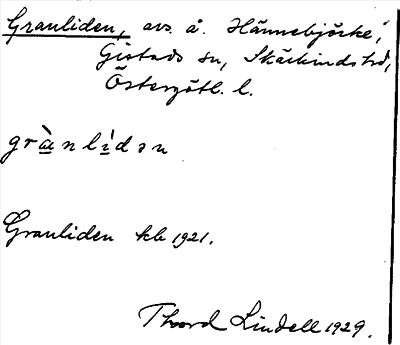 Granliden, avs. å. Hännebjörke,
Gistads sn, Skärkinds hd,
Östergötl. l.
grànlìdən
Granliden kb 1921.
Thord Lindell 1929.